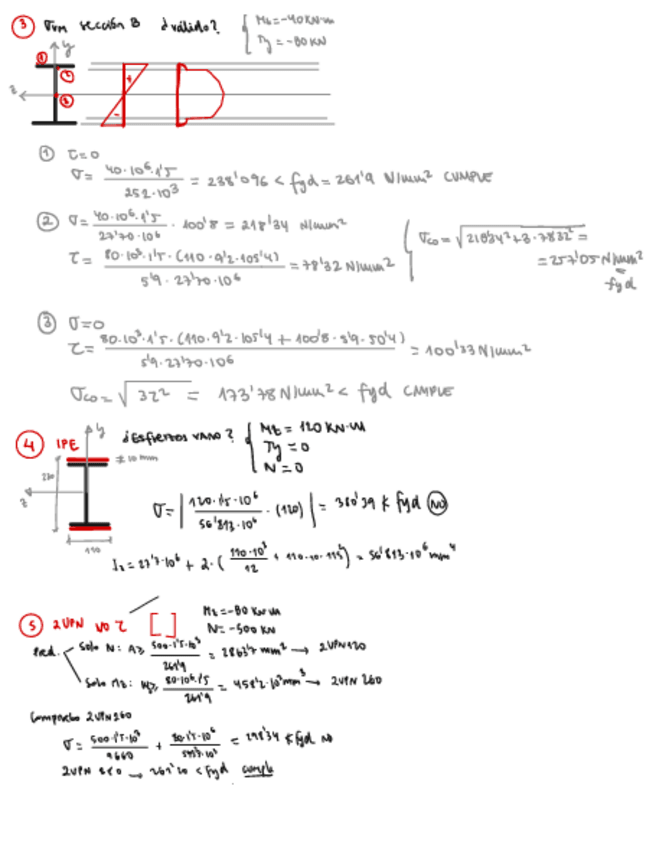 ③ σvm sección B ¿válido? { Mz=-40KN·m
Ty = -80 KN
① y
②
z ③
+
-
① τ=0
σ= 40·10⁶·1'5 / 252·10³ = 238'096 < fyd = 261'9 N/mm² CUMPLE
② σ= 40·10⁶·1'5 / 27'70·10⁶ · 100'8 = 218'34 N/mm²
τ= 80·10³·1'5·(110·9'2·105'4) / 5'9·27'70·10⁶ = 78'32 N/mm²
σco = √218'34²+3·78'32² =
= 257'05 N/mm²
< fyd
③ σ=0
τ= 80·10³·1'5·(110·9'2·105'4 + 100'8·5'9·50'4) / 5'9·27'70·10⁶ = 100'33 N/mm²
σco = √3τ² = 173'78 N/mm² < fyd CUMPLE
④ IPE ¿Esfuerzos vano? { Mz = 120 KN·m
Ty = 0
N = 0
y
≠ 10 mm
220
z
110
σ= | 120·1'5·10⁶ / 56'813·10⁶ · (120) | = 380'39 ≮ fyd NO
Iz = 27'7·10⁶ + 2·( 110·10³ / 12 + 110·10·115² ) = 56'813·10⁶ mm⁴
⑤ 2UPN NO τ [ ] Mz=-80 KN·m
N=-500 KN
Pred. Solo N: A≥ 500·1'5·10³ / 261'9 = 2863'7 mm² → 2UPN120
Solo Mz: W≥ 80·10⁶·1'5 / 261'9 = 458'2·10³mm³ → 2UPN 260
Compruebo 2UPN260
σ= 500·1'5·10³ / 9660 + 80·1'5·10⁶ / = 298'34 ≮ fyd NO
2UPN → < fyd cumple